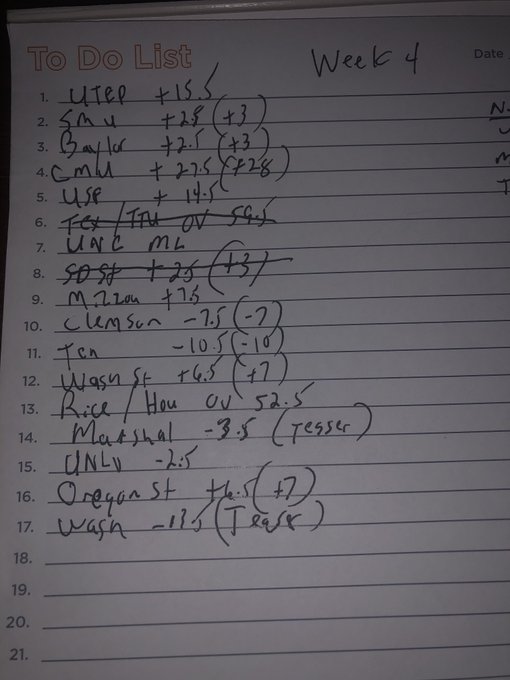 To Do List Week 4 Date
1. UTEP +15.5
2. SMU +2.5 (+3)
3. Baylor +2.5 (+3)
4. CMU + 27.5 (+28)
5. USF + 14.5
6. Tex / TTU OV 59.5
7. UNC ML
8. SD St + 25 (+3)
9. Mizzou +7.5
10. Clemson -7.5 (-7)
11. Ten -10.5 (-10)
12. Wash St +6.5 (+7)
13. Rice / Hou OV 52.5
14. Marshal -3.5 (Teaser)
15. UNLV -2.5
16. Oregon St +6.5 (+7)
17. Wash -13.5 (Tease)
18.
19.
20.
21.